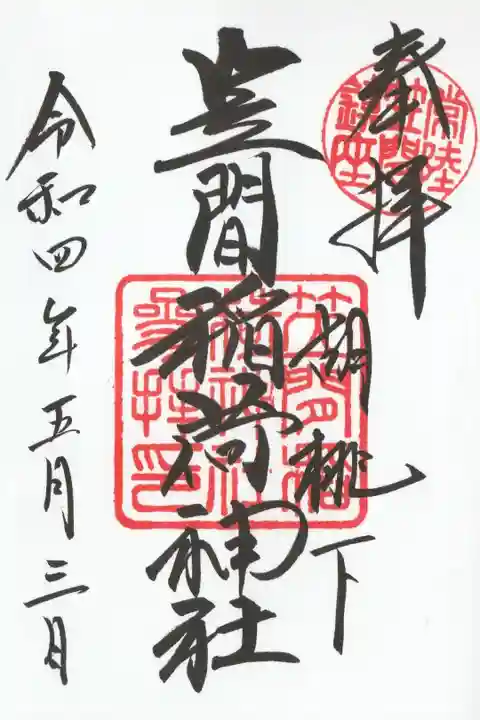 奉拝
胡桃下
笠間稲荷神社
令和四年五月三日
常陸
笠間
鎮座
笠間稲
荷神社
参拝印